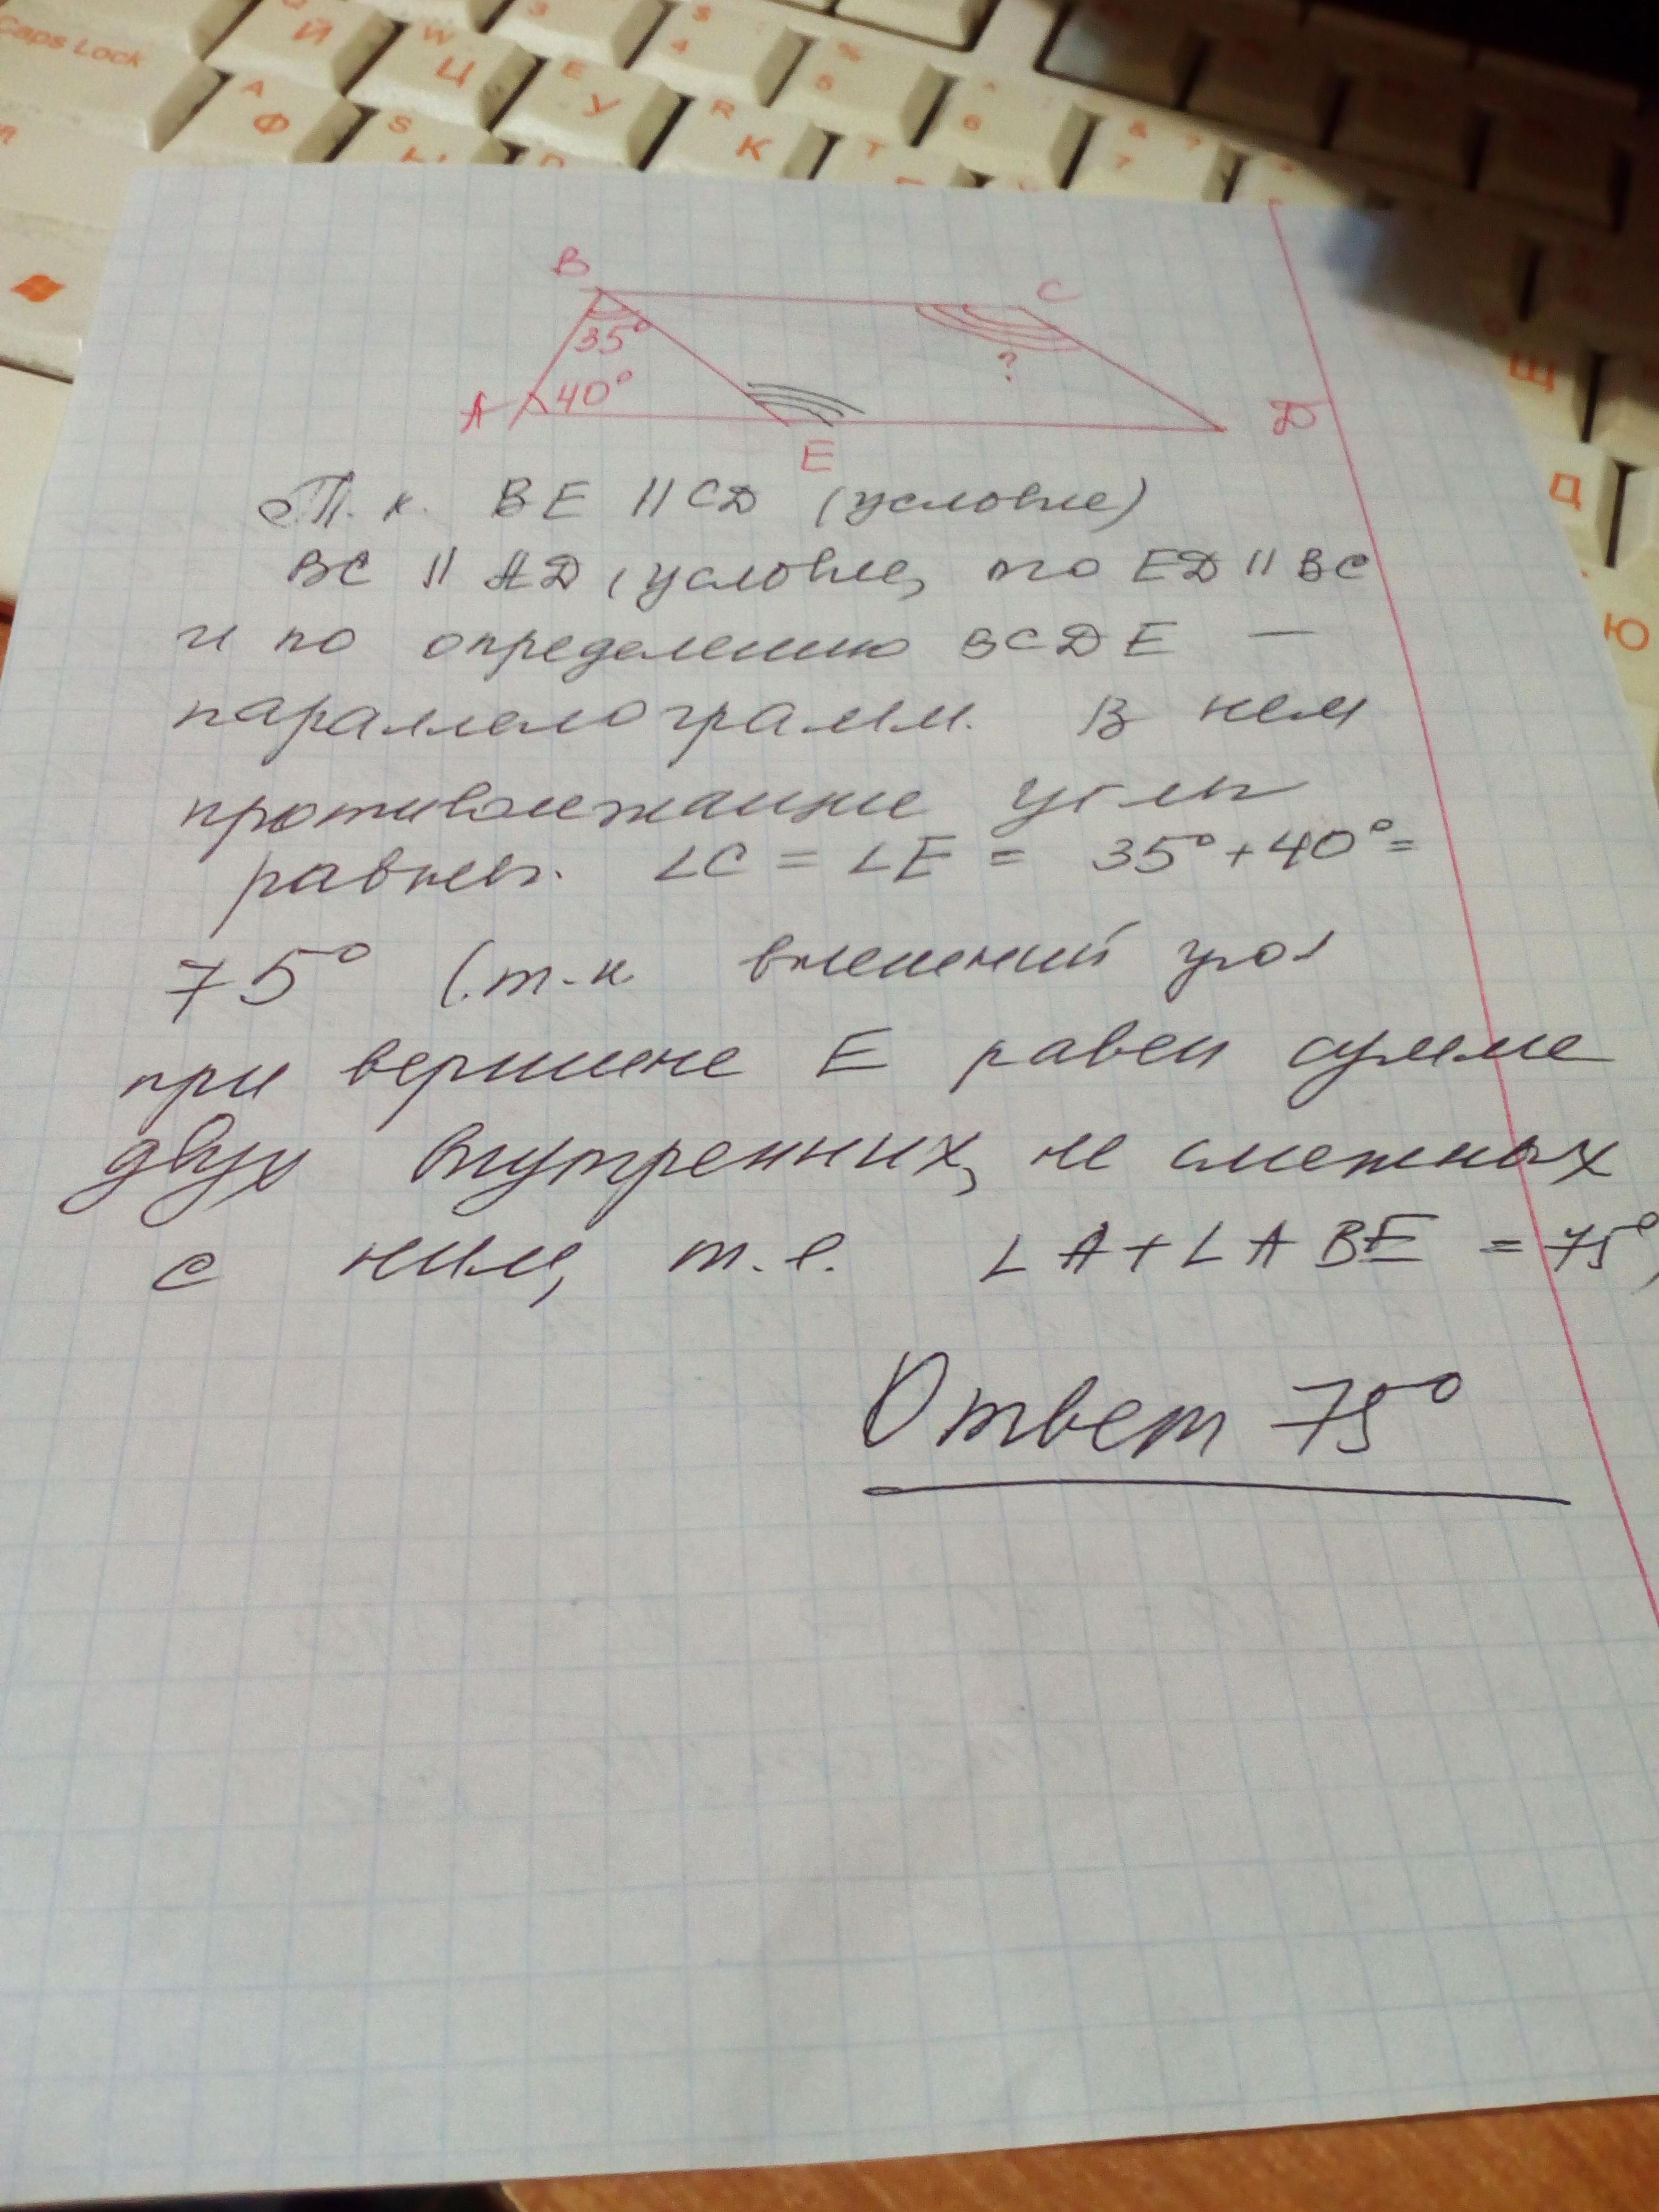 Caps Lock
Й
W
Ц
E
У
3
$
4
R
К
%
5
T
^
6
&
7
?
A
Ф
S
Ы
D
Щ
Д
Ю
B
C
35°
?
A
40°
D
E
Т.к. BE || CD (условие)
BC || AD (условие, то ED || BC
и по определению BCDE —
параллелограмм. В нем
противолежащие углы
равны. ∠C = ∠E = 35° + 40° =
75° (т.к внешний угол
при вершине E равен сумме
двух внутренних, не смежных
с ним, т.е. ∠A + ∠ABE = 75°,
Ответ 75°